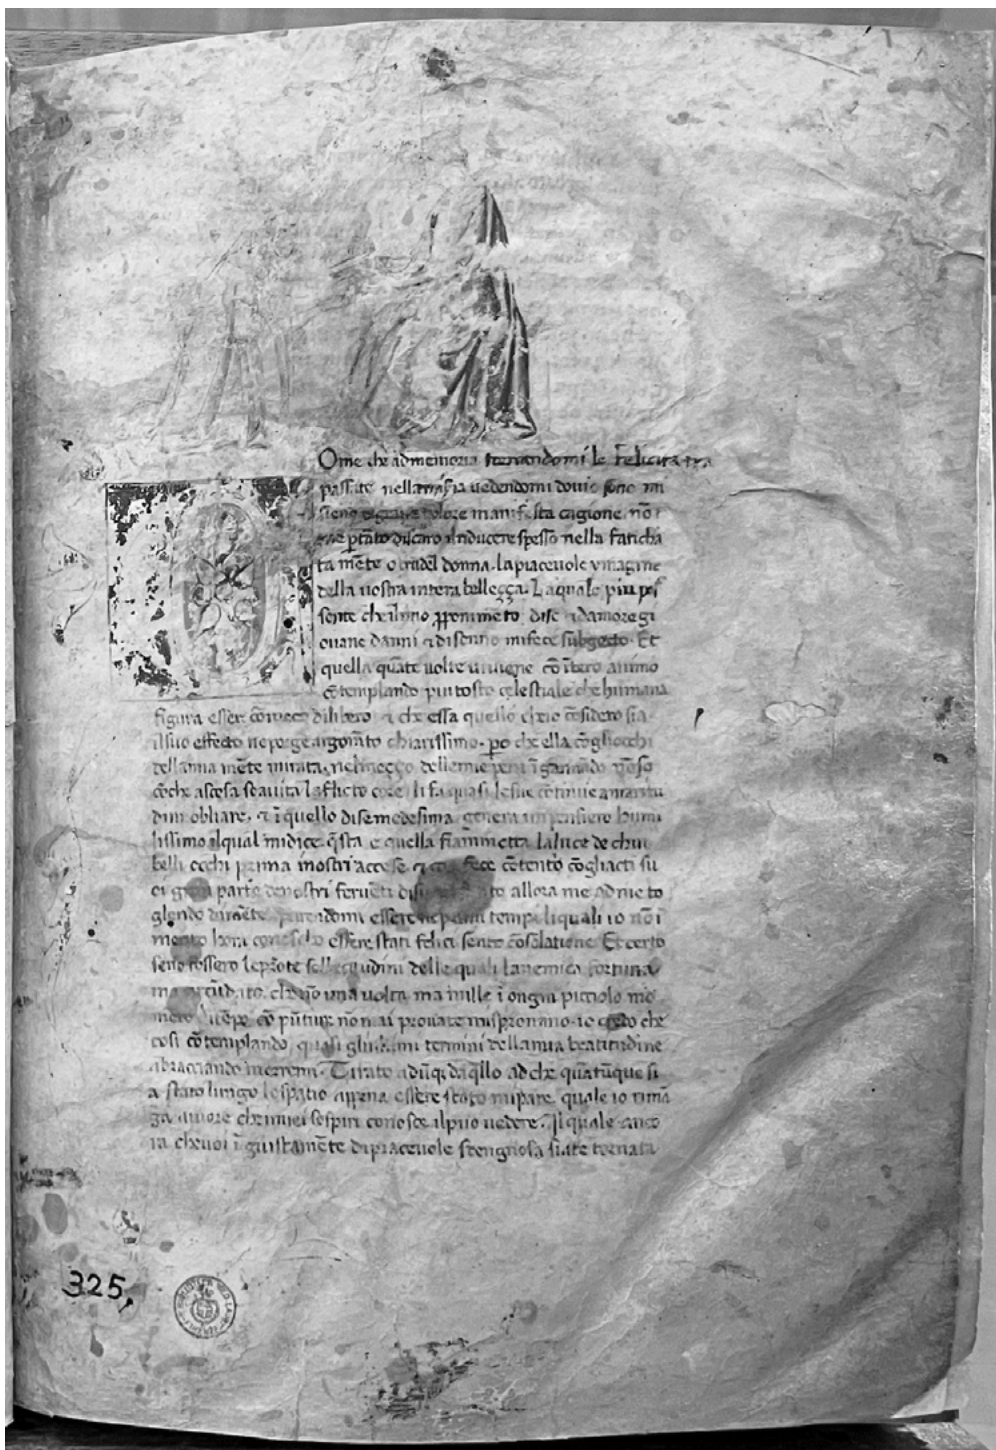 Ome che ad memoria tornandomi le felicita tra
passate nella miſia vedendomi dovio sono mi
sieno di grave dolore manifesta cagione no
me ꝑtāto discaro il riducere spesso nella faticha
ta mēte o crudel donna. la piacevole ymagine
della vostra intera bellecça. La quale piu poſ
sente che il mio ꝓponimēto di se ⁊ damore gi
ovane danni ⁊ di senno mi fece subgecto. Et
quella quāte volte mi viene cō ītero animo
cōtemplando piu tosto celestiale che humana
figura esser cōmeco dilibero. ⁊ che essa quello chio cōsidero sia
il suo effecto ne porge argomēto chiarissimo. ꝑo che ella cogliocchi
della mia mēte mirata. nel meçço delle mie pene īgannādo
cōche ascosa soavita laflicto core li fa quasi le sue cōtinue amaritu
dini obliare. ⁊ ī quello di se medesima genera un pensiero humi
lissimo il qual mi dice. q̄sta e quella fiāmmetta la luce de chui
belli occhi prima i nostri accese ⁊ fece cōtento cōgliacti su
oi gran parte de nostri fervēti disii allora me ad me to
gliendo di mēte parendomi essere ne primi tempi li quali io nō ī
merito hora conoscho essere stati felici sento cōsolatione. Et certo
se nō fossero le prōte sollecitudini delle quali la nemica fortuna
ma cīcūdato. che nō una volta ma mille ī ongni piccolo mo
mēto di tēpo cō pūture nō mai provate mi spronano. io credo che
cosi cōtemplando quasi gli ultimi termini della mia beatitudine
abracciando morrei. Tirato adūq̄ da q̄llo ad che quātūque si
a stato lungo lo spatio appena essere stato mi pare. quale io rimā
ga amore che i miei sospiri conosce il puo vedere. Il quale anco
ra che voi īgiustamēte di piacevole sdengnosa siate tornata
325,